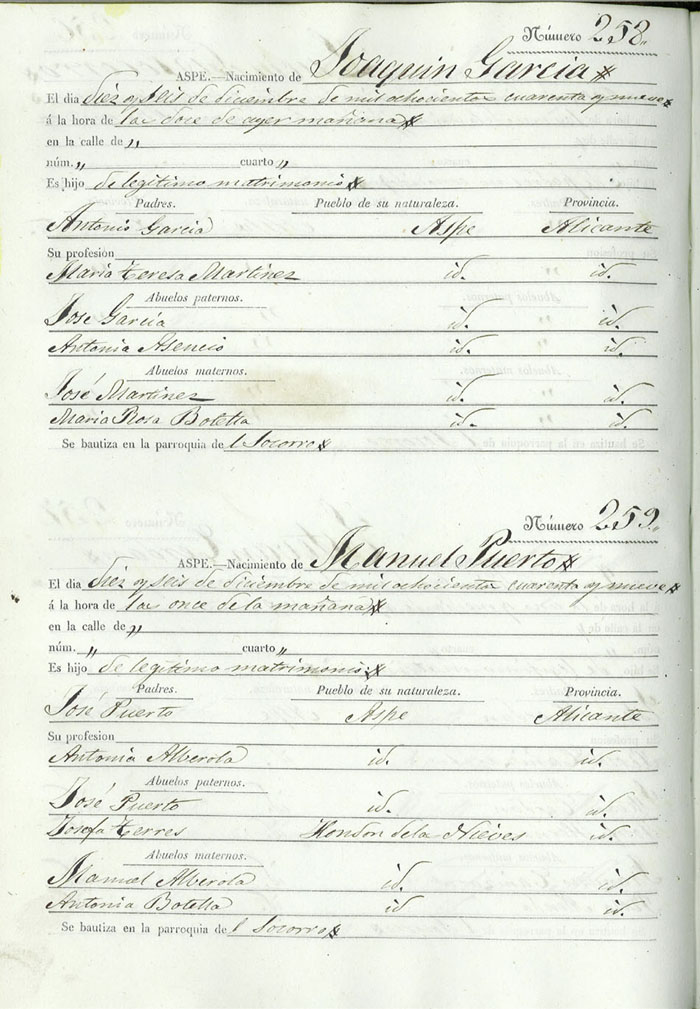 Número 258.
ASPE.—Nacimiento de Joaquin Garcia
El dia diez y seis de diciembre de mil ochocientos cuarenta y nueve
á la hora de las doce de ayer mañana
en la calle de "
núm. " cuarto "
Es hijo de legitimo matrimonio
Padres. Pueblo de su naturaleza. Provincia.
Antonio Garcia Aspe Alicante
Su profesion
Maria Teresa Martinez id. id.
Abuelos paternos.
Jose Garcia id. id.
Antonia Asencio id. id.
Abuelos maternos.
José Martinez id. id.
Maria Rosa Botella id. id.
Se bautiza en la parroquia de l Socorro
Número 259.
ASPE.—Nacimiento de Manuel Puerto
El dia diez y seis de diciembre de mil ochocientos cuarenta y nueve
á la hora de las once de la mañana
en la calle de "
núm. " cuarto "
Es hijo de legitimo matrimonio
Padres. Pueblo de su naturaleza. Provincia.
José Puerto Aspe Alicante
Su profesion
Antonia Alberola id. id.
Abuelos paternos.
José Puerto id. id.
Josefa Terres Hondon de la Nieves id.
Abuelos maternos.
Manuel Alberola id. id.
Antonia Botella id id.
Se bautiza en la parroquia de l Socorro